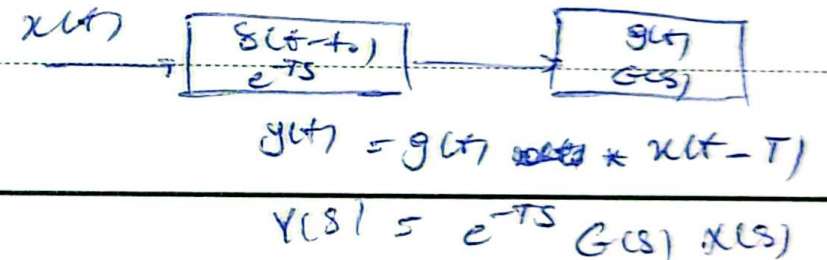 x(t)
δ(t-t₀)
e^-TS
g(t)
G(S)
y(t) = g(t) * x(t-T)
Y(S) = e^-TS G(S) X(S)